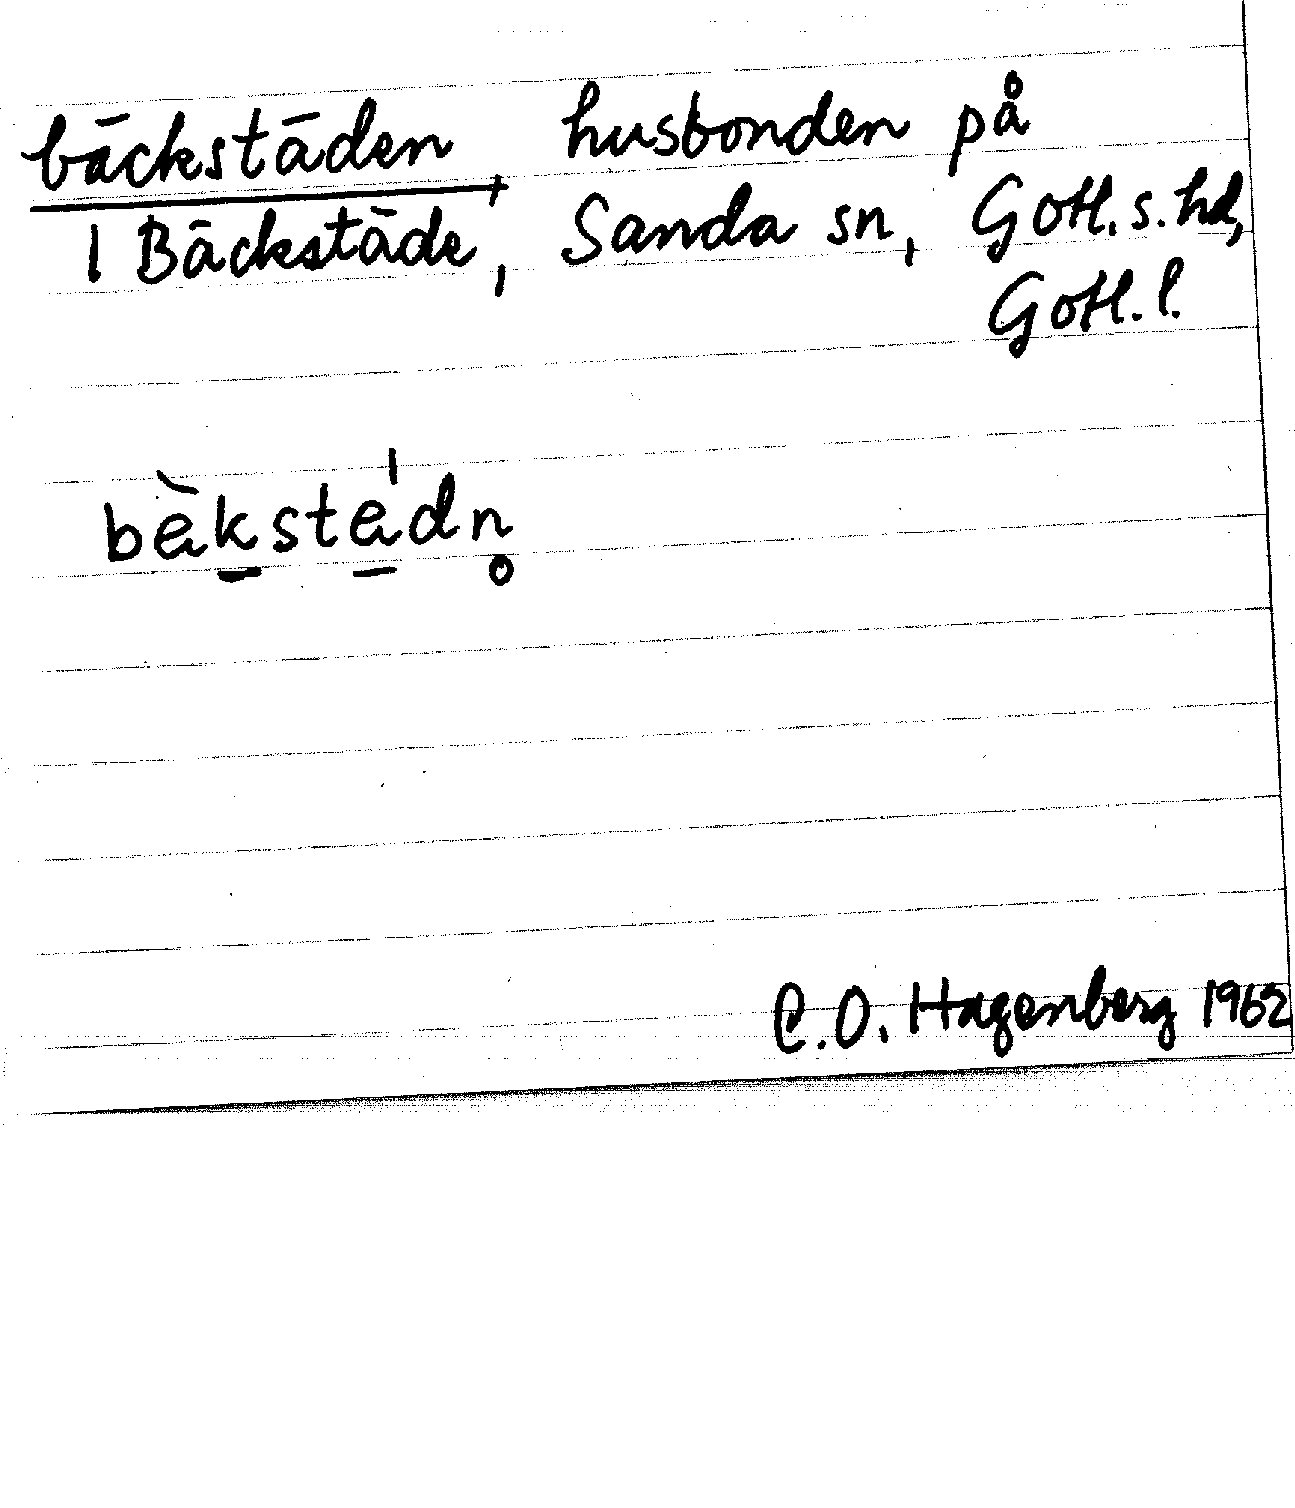 bäckstäden, husbonden på
1 Bäckstäde, Sanda sn, Gotl. s. hd,
Gotl. l.
bèkstedn̥
C. O. Hagenberg 1962